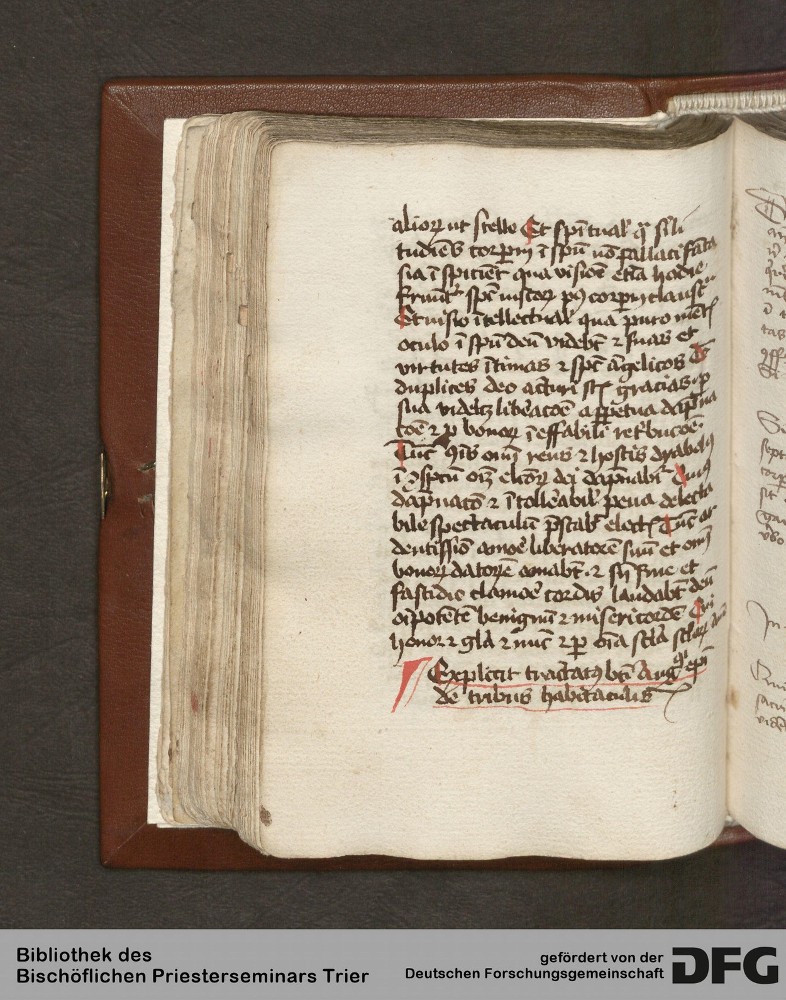 alioꝝ ut stelle Et spūal' qͣ sīli
tudīes corpoꝝ ī spū nō fallaci fāta
sia īspiciēt qua visiōe etiā hodie
fruūt' spūs iustoꝝ pꝰ corpoꝝ claustꝝ
Et visio ītellectual' qua puro mētꝭ
oculo ī spū deū videbūt ⁊ suas et
virtutes ītimas ⁊ spūs āgelicos
duplices deo acturi sūt gracias p
sua videlꝫ liberacōe a ppetua dāpna
cōe ⁊ p bonoꝝ īeffabili retͥbucōe
Tūc ꝙs om̄i reus ⁊ hostis dyabolꝰ
ī ꝯspctū oīm elcōꝝ dei dāpnabit'
dāpnatō ⁊ ītolleabil' pena delecta
bile spectaculū p̄stabit electꝭ Tūc ar
dentissīo amoē liberatorē suū et om̄
bonoꝝ datorē amabūt ⁊ sn̄ fine et
fastidio clamoē cordis laudabūt deū
oīpotētē benignū ⁊ misericordē Cui
honor ⁊ glā ⁊ nūc ⁊ p oīa scla scloꝝ Amē
Explicit tractatꝰ bt̄i Augꝰⁱ epī
de tribus habitaculis
Bibliothek des
Bischöflichen Priesterseminars Trier
gefördert von der
Deutschen Forschungsgemeinschaft
DFG